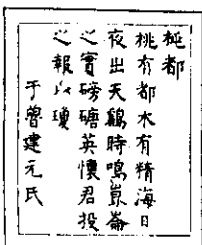 桃都
桃有都木有精海日
夜出天鷄時鳴崑崙
之實磅磄英懷君投
之報以瓊
于曾建元氏